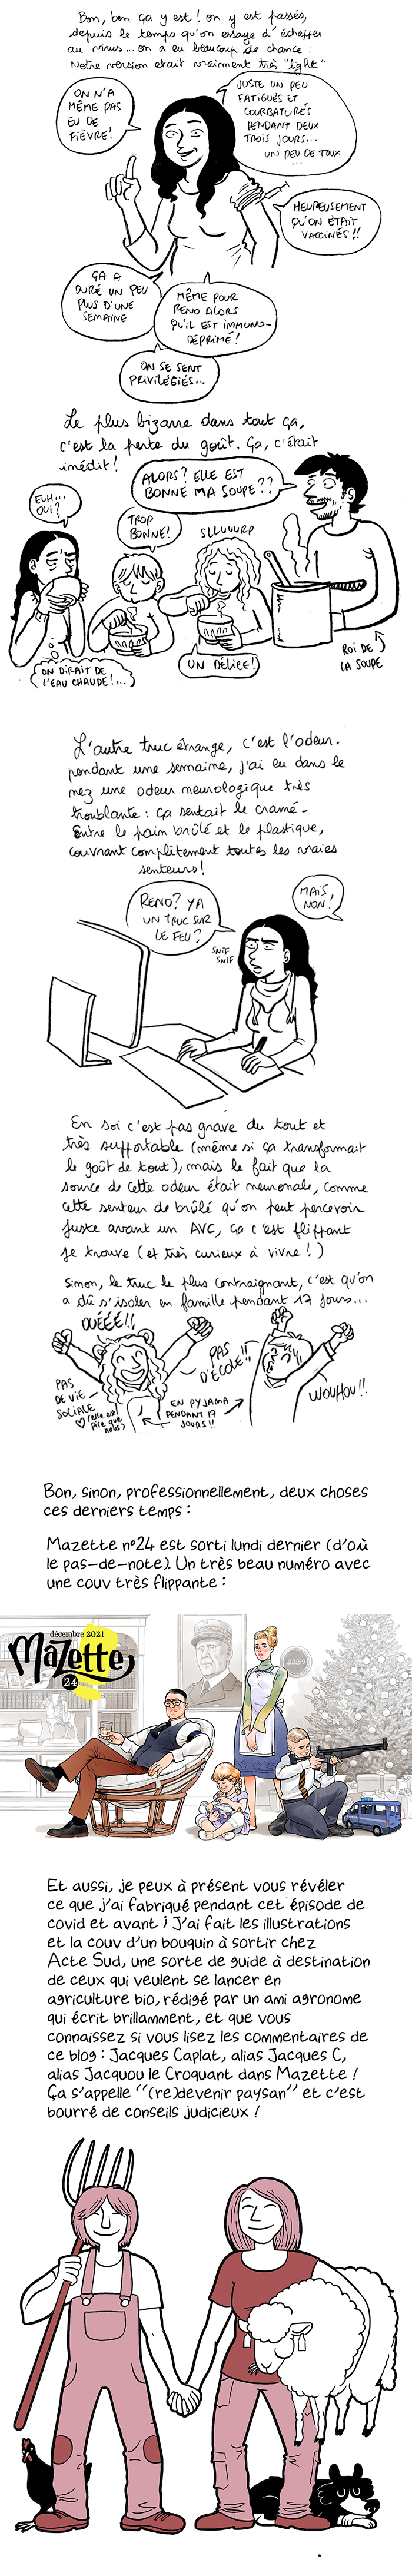 Bon, ben ça y est ! on y est passés,
depuis le temps qu'on essaye d'échapper
au virus... on a eu beaucoup de chance :
Notre version était vraiment très "light"
ON N'A
MÊME PAS
EU DE
FIÈVRE !
JUSTE UN PEU
FATIGUÉS ET
COURBATURÉS
PENDANT DEUX
TROIS JOURS...
UN PEU DE TOUX
...
HEUREUSEMENT
QU'ON ÉTAIT
VACCINÉS !!
ÇA A
DURÉ UN PEU
PLUS D'UNE
SEMAINE
MÊME POUR
RENO ALORS
QU'IL EST IMMUNO-
DÉPRIMÉ !
ON SE SENT
PRIVILÉGIÉS...
Le plus bizarre dans tout ça,
c'est la perte du goût. Ça, c'était
inédit !
ALORS ? ELLE EST
BONNE MA SOUPE ??
EUH...
OUI ?
TROP
BONNE !
SLLUUURP
UN DÉLICE !
ON DIRAIT DE
L'EAU CHAUDE !...
ROI DE
LA SOUPE
L'autre truc étrange, c'est l'odeur.
pendant une semaine, j'ai eu dans le
nez une odeur neurologique très
troublante : ça sentait le cramé -
Entre le pain brûlé et le plastique,
couvrant complètement toutes les vraies
senteurs !
RENO ? YA
UN TRUC SUR
LE FEU ?
MAIS
NON !
SNIF
SNIF
En soi c'est pas grave du tout et
très supportable (même si ça transformait
le goût de tout), mais le fait que la
source de cette odeur était neuronale, comme
cette senteur de brûlé qu'on peut percevoir
juste avant un AVC, ça c'est flippant
je trouve (et très curieux à vivre ! )
Sinon, le truc le plus contraignant, c'est qu'on
a dû s'isoler en famille pendant 17 jours...
OUÉÉÉ !!
PAS
D'ÉCOLE !!
WOUHOU !!
PAS
DE VIE
SOCIALE
(elle est
pire que
nous)
EN PYJAMA
PENDANT 17
JOURS !!
Bon, sinon, professionnellement, deux choses
ces derniers temps :
Mazette n°24 est sorti lundi dernier (d'où
le pas-de-note). Un très beau numéro avec
une couv très flippante :
décembre 2021
Mazette
24
23:59
Et aussi, je peux à présent vous révéler
ce que j'ai fabriqué pendant cet épisode de
covid et avant ; J'ai fait les illustrations
et la couv d'un bouquin à sortir chez
Acte Sud, une sorte de guide à destination
de ceux qui veulent se lancer en
agriculture bio, rédigé par un ami agronome
qui écrit brillamment, et que vous
connaissez si vous lisez les commentaires de
ce blog : Jacques Caplat, alias Jacques C,
alias Jacquou le Croquant dans Mazette !
Ça s'appelle "(re)devenir paysan" et c'est
bourré de conseils judicieux !